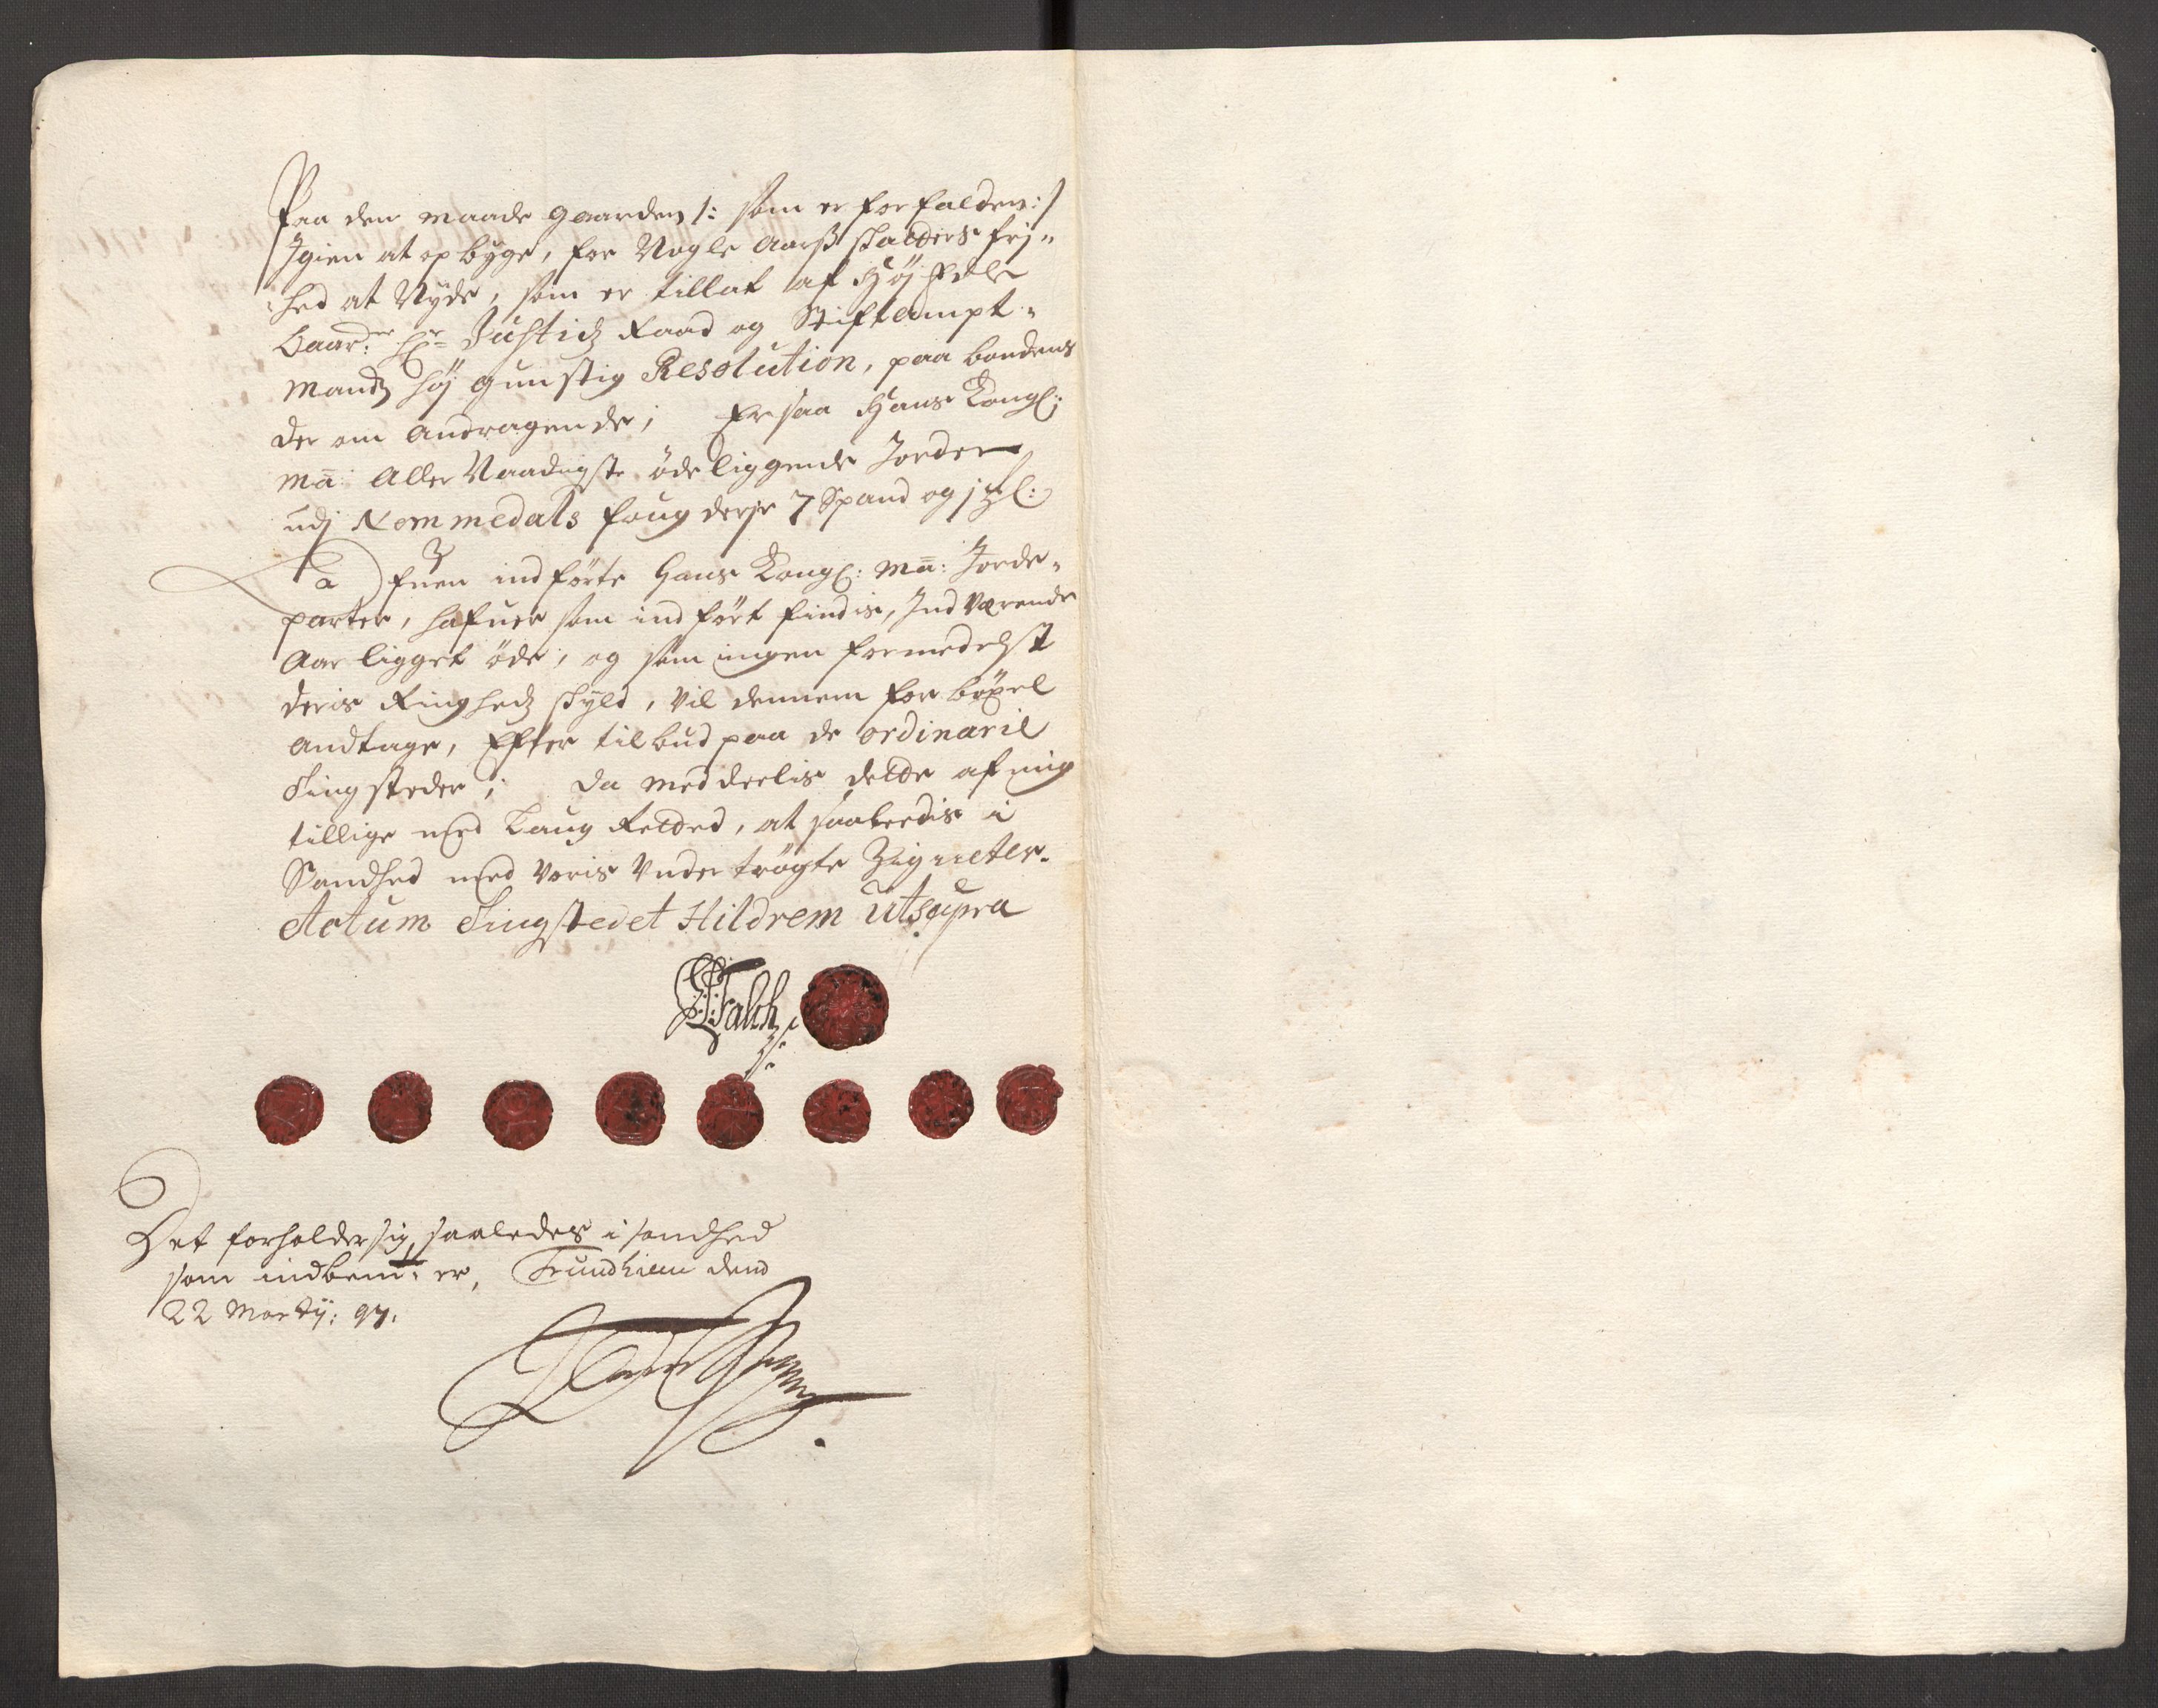 Paa den maade gaarden /: som er forfalden :/
Igien at opbyge, for Nogle Aarß skatters frj-
hed at Nyde, som er tillat af Høj Edle
Baar: Hr Justiz Raad og Stiftampt-
mandz høj gunstig Resolution, paa bondens
der om andragende; Er saa Hans Kongl:
Ma: Aller Naadigste øde liggende Jorder
udj Nommedals fougderje 7 Spand og
fuen indførte Hans Kongl: Ma: Jorde-
parter, hafuer som indført findis, Ind Værende
Aar ligget øde, og som ingen formedelst
deris Ringhedz skyld, vil dennem for bøxel
andtage, Efter tilbud paa de ordinarie
Tingsteder; Da meddeelis dette af mig
tillige med Laug Retted, at saaleedis i
Sandhed med voris Vndertrögte Zigneter.
Actum Tingstedet Hildrem Utsupra
Falch
Det forholder sig saaledes i sandhed
som indbem: er, Trundhiem dend
22 Martij: 97.